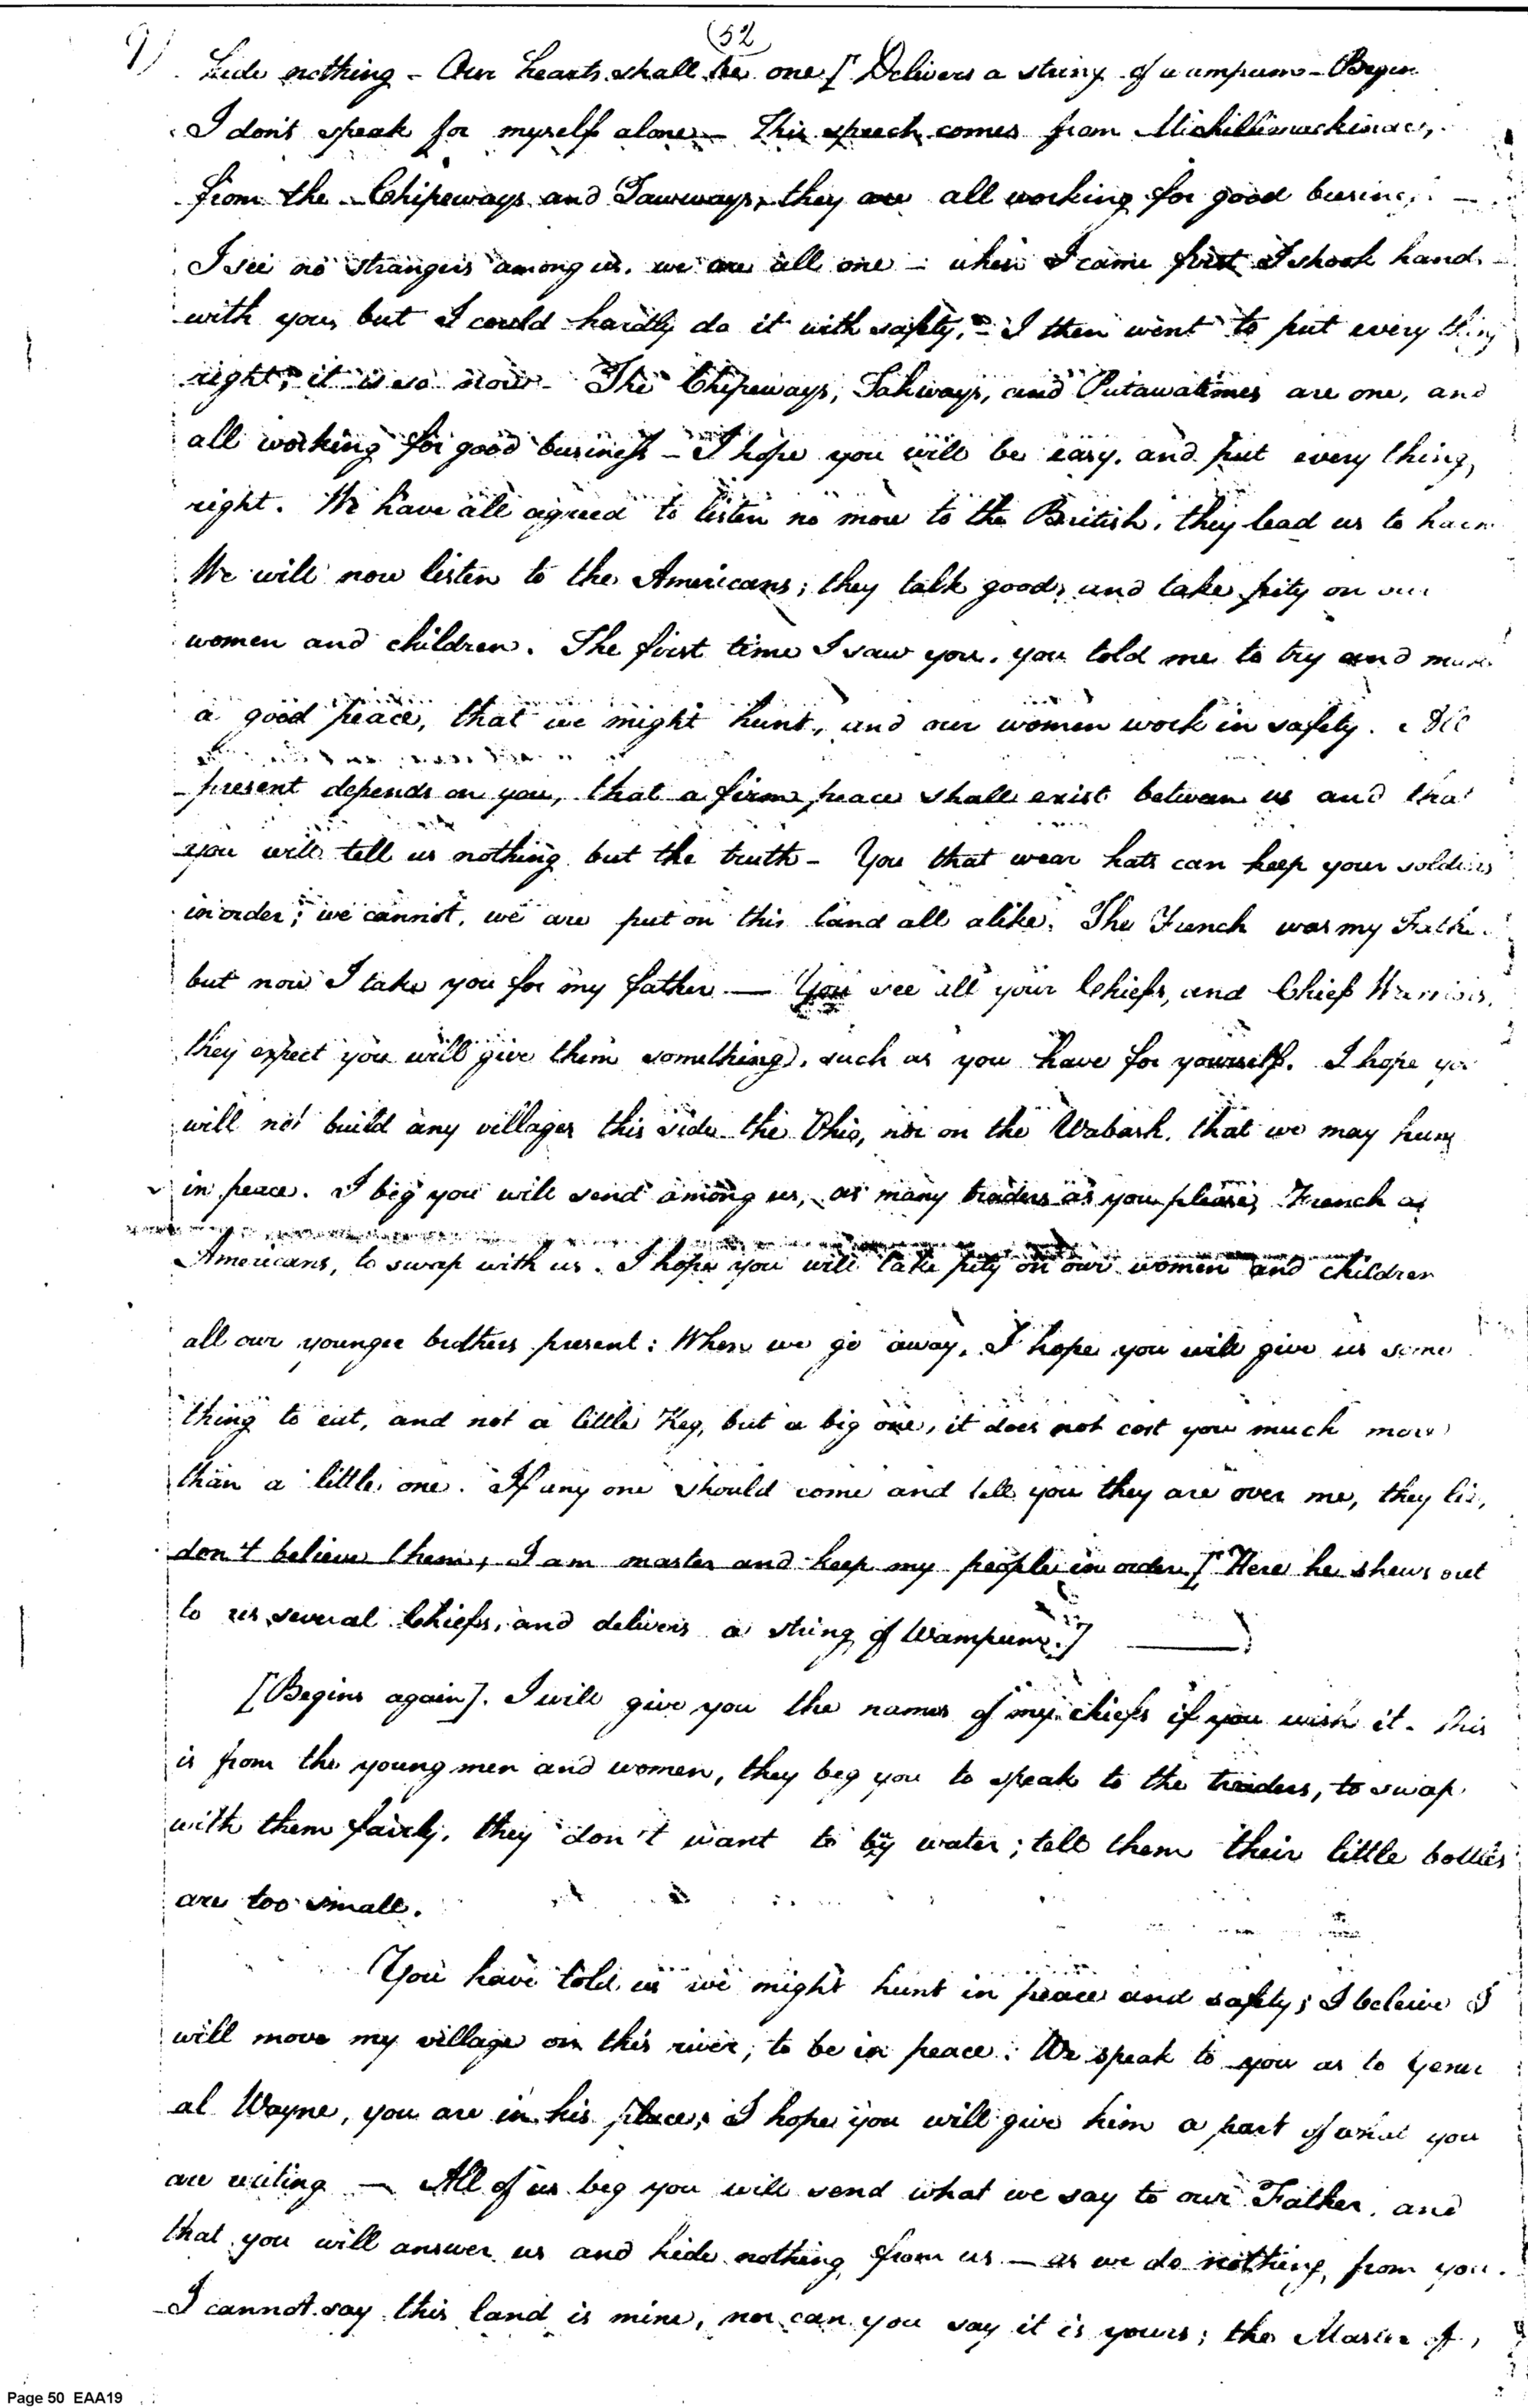 (52
9)
hide nothing - Our hearts shall be one [Delivers a string of wampum - Begins
I don't speak for myself alone - This speech comes from Michillimackinac,
from the Chipeways and Tawways, they are all working for good business -
I see no strangers among us, we are all one - when I came first I shook hands
with you, but I could hardly do it with safety, - I then went to put every thing
right, it is so now - The Chipeways, Tahways, and Putawatimes are one, and
all working for good business - I hope you will be easy, and put every thing,
right. We have all agreed to listen no more to the British, they lead us to harm
We will now listen to the Americans; they talk good, and take pity on our
women and children. The first time I saw you, you told me to try and make
a good peace, that we might hunt, and our women work in safety. All
present depends on you, that a firm peace shall exist between us and that
you will tell us nothing but the truth - You that wear hats can keep your soldiers
in order; we cannot, we are put on this land all alike. The French was my Father
but now I take you for my father — You see all your Chiefs, and Chief Warriors,
they expect you will give them something, such as you have for yourself. I hope you
will not build any villages this side the Ohio, nor on the Wabash, that we may hunt
in peace. I beg you will send among us, as many traders as you please, French as
Americans, to swap with us. I hope you will take pity on our women and children
all our younger brothers present: When we go away, I hope you will give us some
thing to eat, and not a little Keg, but a big one, it does not cost you much more
than a little one. If any one should come and tell you they are over me, they lie,
don't believe them, I am master and keep my people in order [Here he shews out
to us several Chiefs, and delivers a string of Wampum.] —
[Begins again]. I will give you the names of my chiefs if you wish it - This
is from the young men and women, they beg you to speak to the traders, to swap
with them fairly, they don't want to by water; tell them their little bottles
are too small.
You have told us we might hunt in peace and safety; I beleive I
will move my village on this river, to be in peace: We speak to you as to Gener
al Wayne, you are in his place; I hope you will give him a part of what you
are writing — All of us beg you will send what we say to our Father, and
that you will answer us and hide nothing from us — as we do nothing from you.
I cannot say this land is mine, nor can you say it is yours; the Master of
Page 50 EAA19